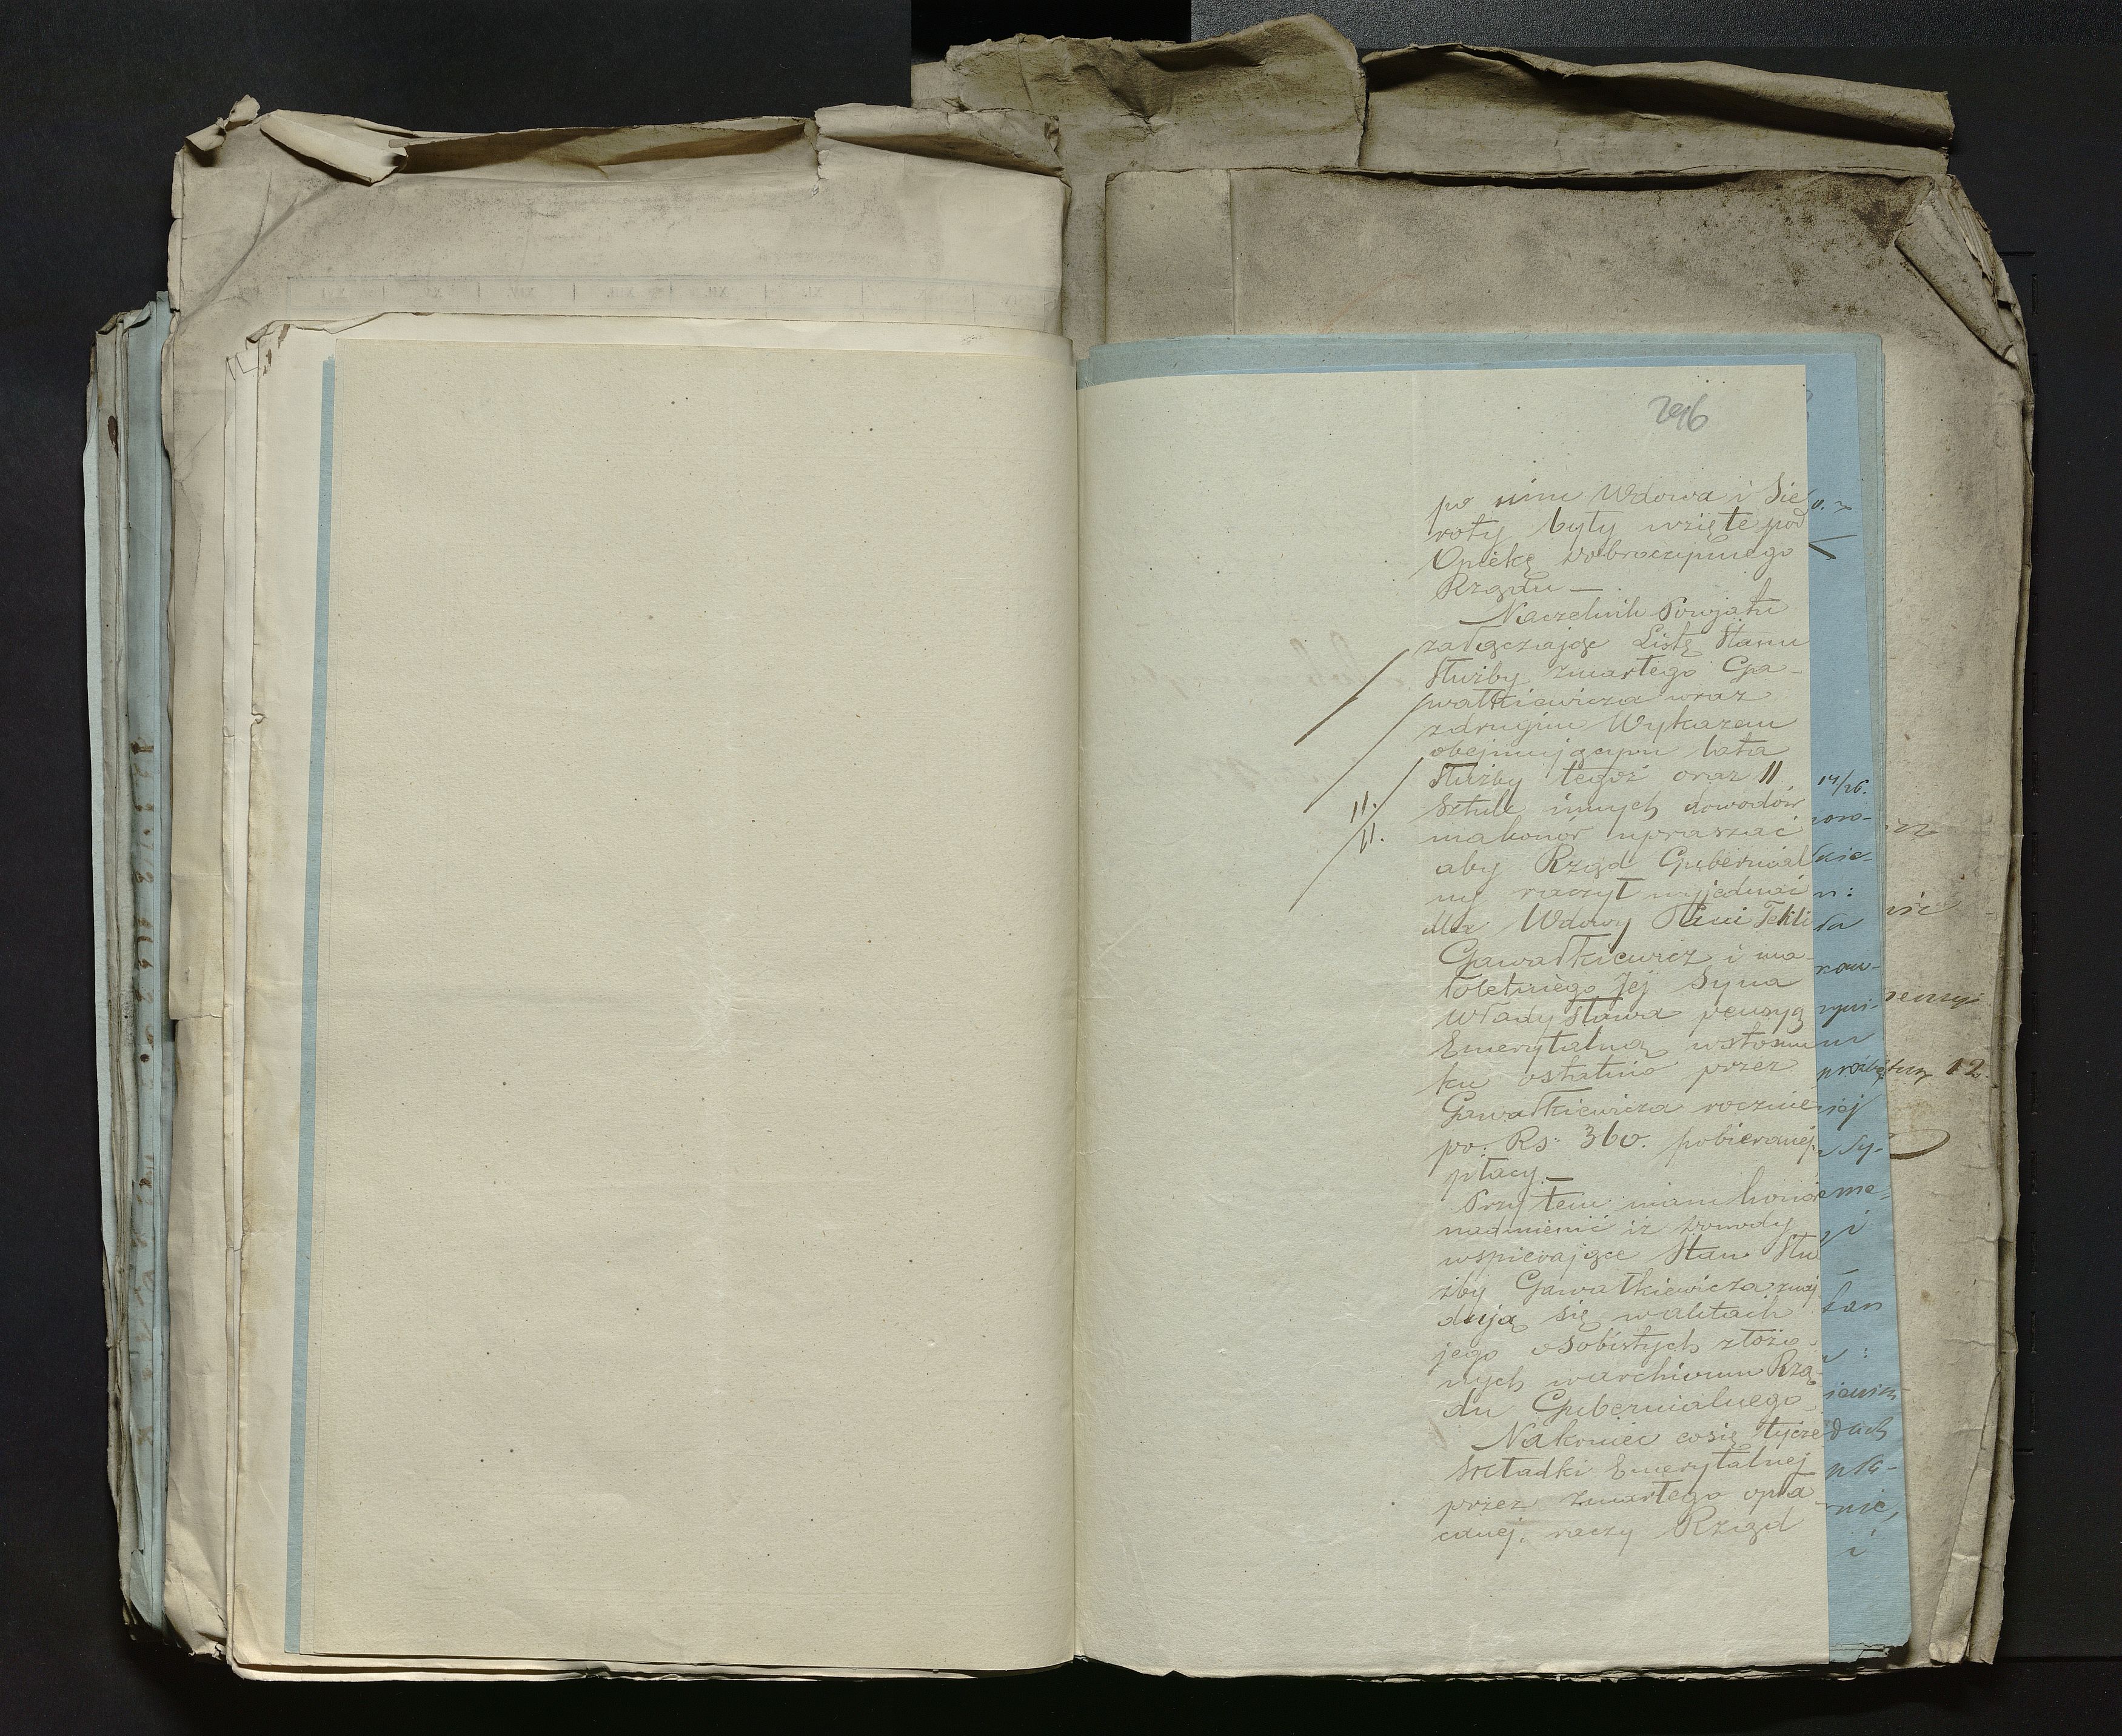 296
po nim Wdowa i Sie
roty były wzięte pod
Opiekę dobroczynnego
Rządu —
Naczelnik Powiatu
załączając Listę Stanu
Służby zmarłego Ga-
wałkiewicza wraz
z drugim Wykazem
obejmującym lata
Służby tegoż oraz 11
Sztuk innych dowodów
ma honór upraszać
aby Rząd Gubernial
ny raczył wyjednać
dla Wdowy Pani Tekli
Gawałkiewicz i ma-
łoletniego Jej Syna
Władysława pensyą
Emerytalną w stosun
ku ostatnio przez
Gawałkiewicza rocznie
po Rs: 360. pobieranej
płacy. —
Przytem mam honór
nadmienić iż dowody
wspierające Stan Słu
żby Gawałkiewicza znaj
dują się w aktach
jego osobistych złożo-
nych w archiwum Rzą-
du Gubernialnego
Nakoniec co się tycze
Składki Emerytalnej
przez zmarłego opła
canej, raczy Rząd
11.
11.
14/26.
12